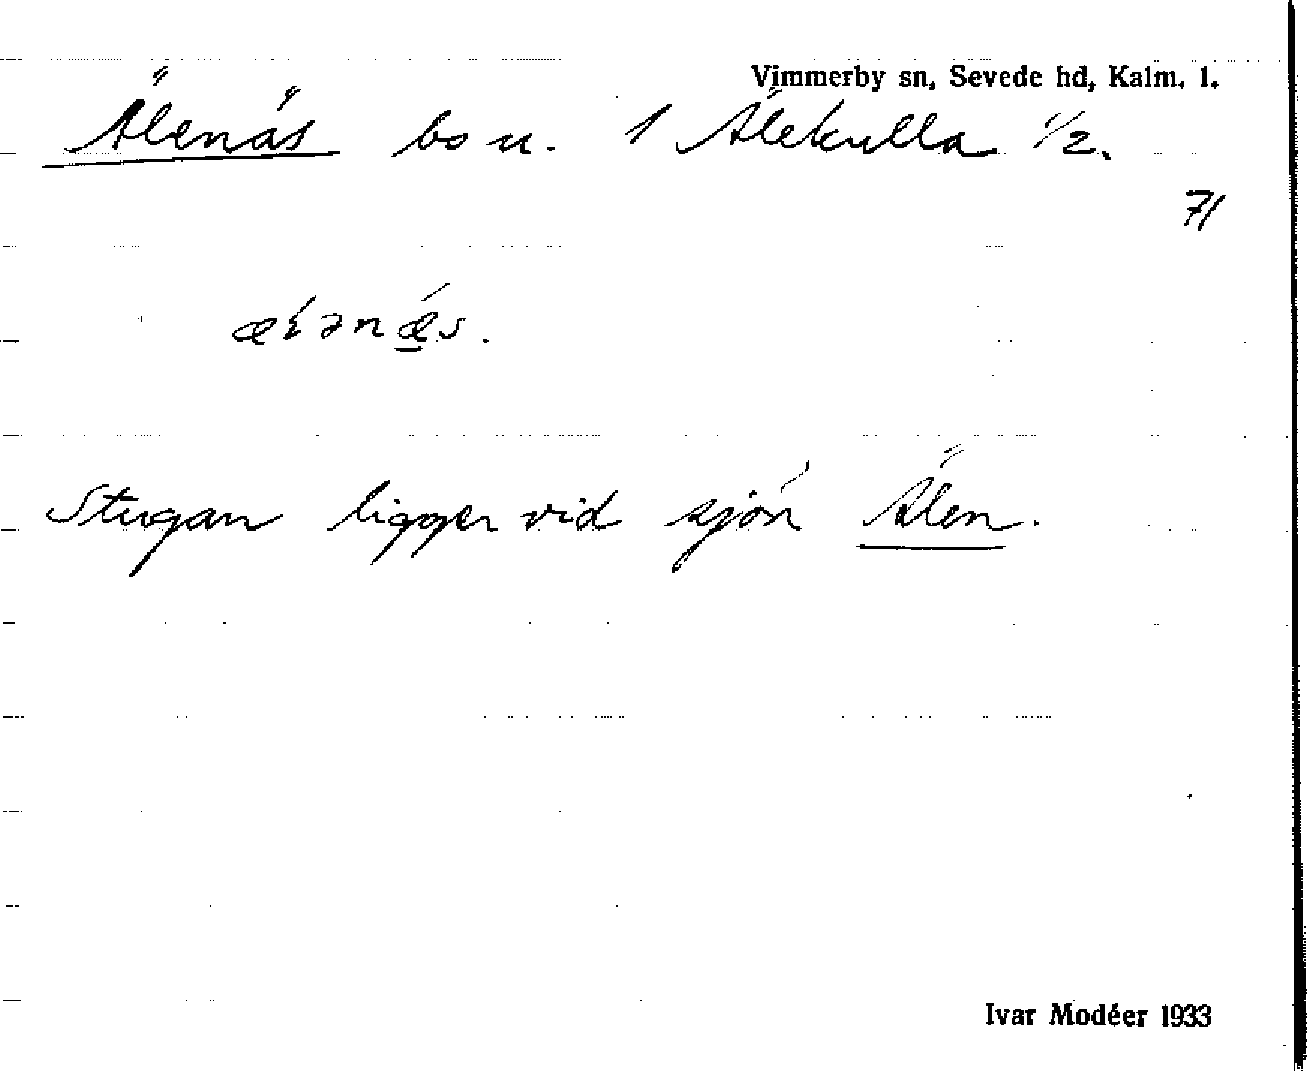 Vimmerby sn, Sevede hd, Kalm. l.
Älenäs bo u. 1 Älekulla 1/2.
71
Stugan ligger vid sjön Älen.
Ivar Modéer 1933